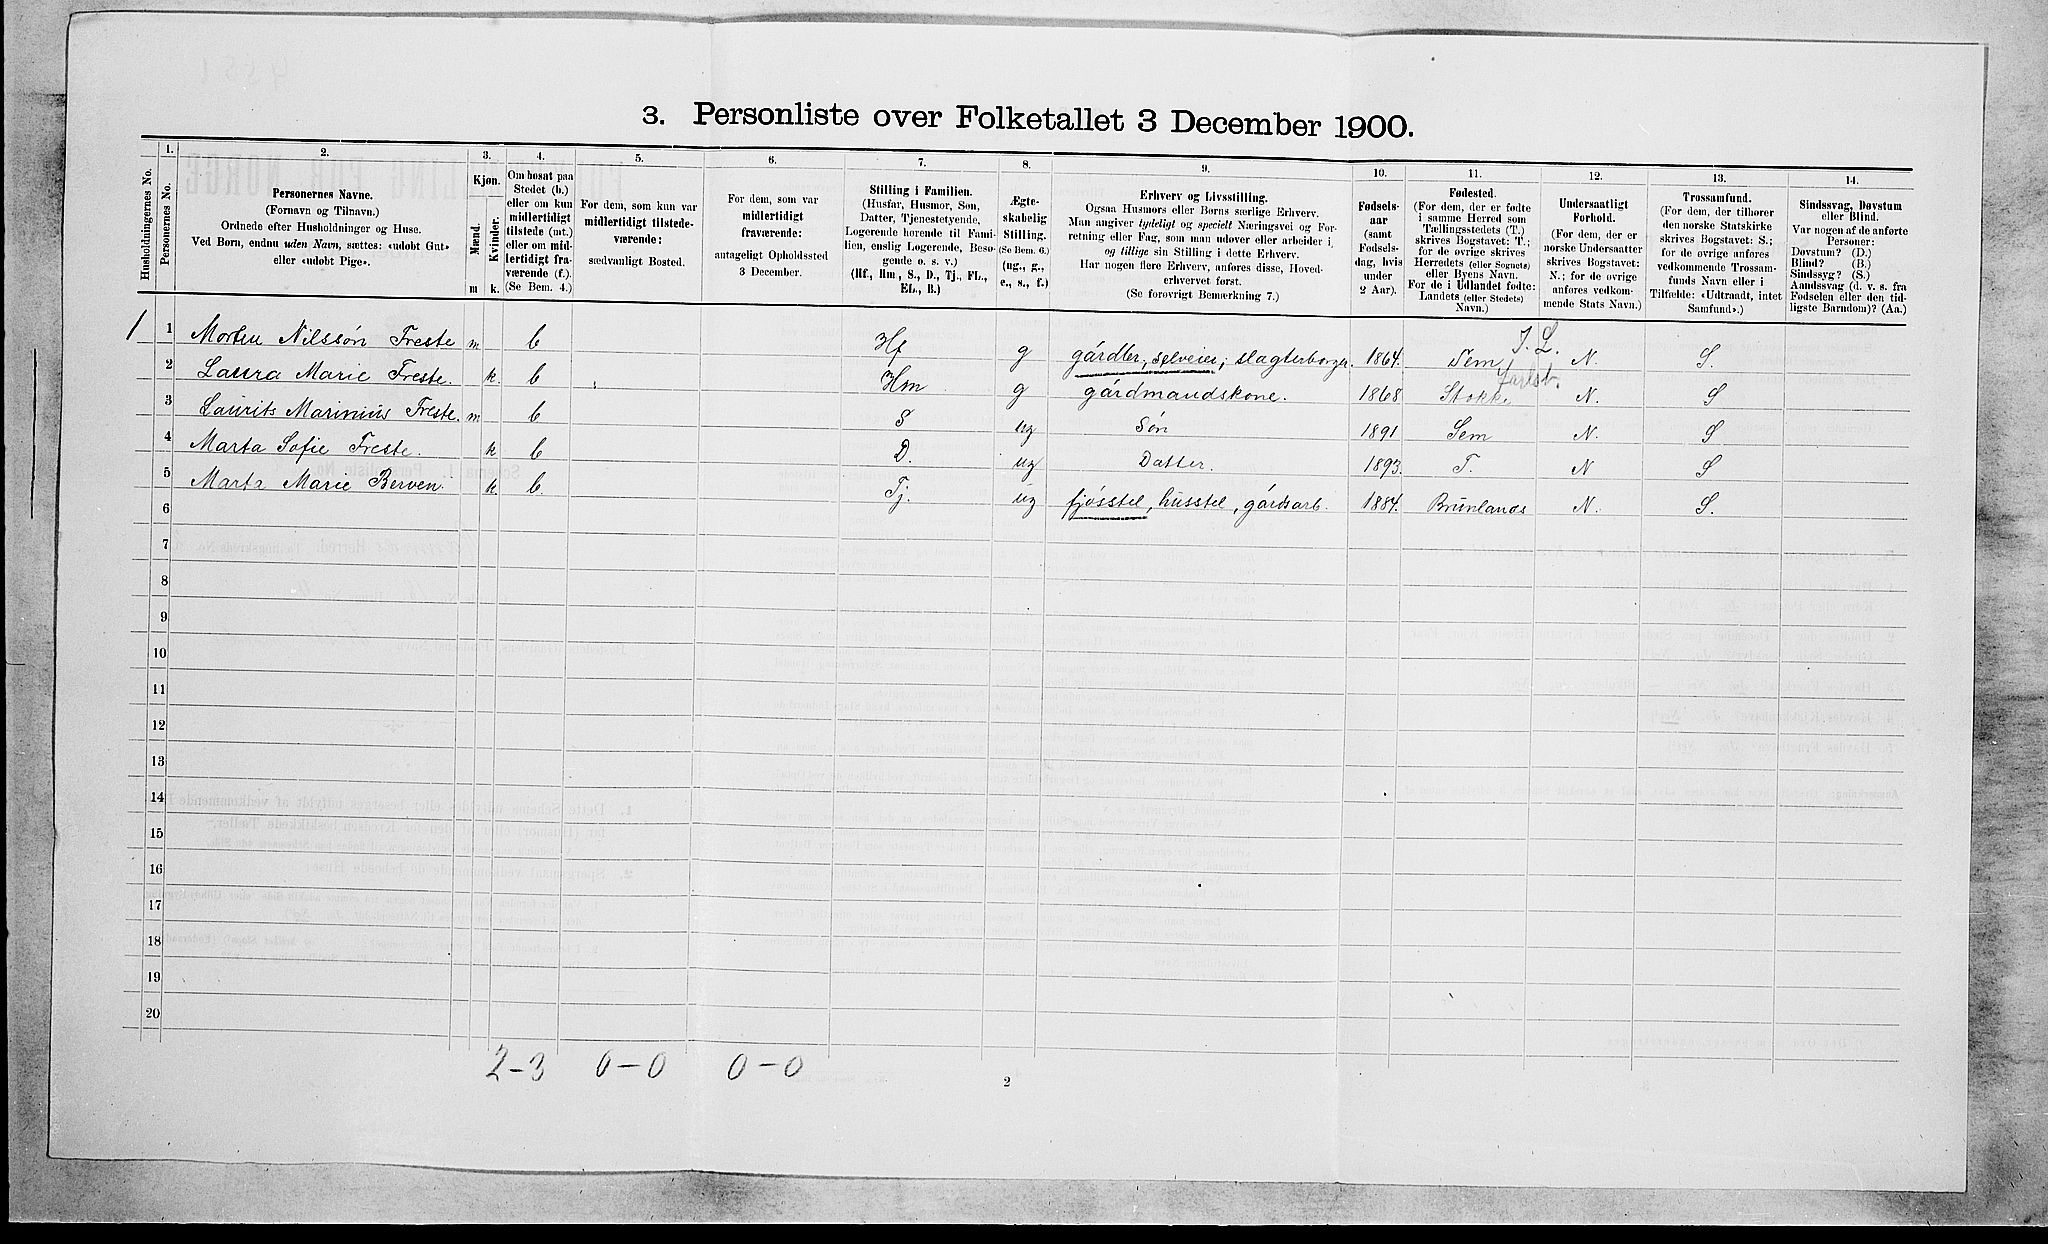 3. Personliste over Folketallet 3 December 1900.
Husholdningernes No.
1.
Personernes No.
2.
Personernes Navne.
(Fornavn og Tilnavn.)
Ordnede efter Husholdninger og Huse.
Ved Børn, endnu uden Navn, sættes: «udøbt Gut»
eller «udøbt Pige».
3.
Kjøn.
Mænd.
Kvinder.
m k.
4.
Om bosat paa
Stedet (b.)
eller om kun
midlertidigt
tilstede (mt.)
eller om mid-
lertidigt fra-
værende (f.).
(Se Bem. 4.)
5.
For dem, som kun var
midlertidigt tilstede-
værende:
sædvanligt Bosted.
6.
For dem, som var
midlertidigt
fraværende:
antageligt Opholdssted
3 December.
7.
Stilling i Familien.
(Husfar, Husmor, Søn,
Datter, Tjenestetyende,
Logerende hørende til Fami-
lien, enslig Logerende, Besø-
gende o. s. v.)
(Hf., Hm., S., D., Tj., FL.,
EL., B.)
8.
Ægte-
skabelig
Stilling.
(Se Bem. 6.)
(ug., g.,
e., s., f.)
9.
Erhverv og Livsstilling.
Ogsaa Husmors eller Børns særlige Erhverv.
Man angiver tydeligt og specielt Næringsvei og For-
retning eller Fag, som man udøver eller arbeider i,
og tillige sin Stilling i dette Erhverv.
Har nogen flere Erhverv, anføres disse, Hoved-
erhvervet først.
(Se forøvrigt Bemærkning 7.)
10.
Fødsels-
aar
(samt
Fødsels-
dag, hvis
under
2 Aar).
11.
Fødested.
(For dem, der er fødte
i samme Herred som
Tællingsstedets (T.)
skrives Bogstavet: T.;
for de øvrige skrives
Herredets (eller Sognets)
eller Byens Navn.
For de i Udlandet fødte:
Landets (eller Stedets)
Navn.)
12.
Undersaatligt
Forhold.
(For dem, der er
norske Undersaatter
skrives Bogstavet:
N.; for de øvrige
anføres vedkom-
mende Stats Navn.)
13.
Trossamfund.
(For dem, der tilhører
den norske Statskirke
skrives Bogstavet: S.;
for de øvrige anføres
vedkommende Trossam-
funds Navn eller i
Tilfælde: «Udtraadt, intet
Samfund».)
14.
Sindssvag, Døvstum
eller Blind.
Var nogen af de anførte
Personer:
Døvstum? (D.)
Blind? (B.)
Sindssyg? (S.)
Aandssvag (d. v. s. fra
Fødselen eller den tid-
ligste Barndom)? (Aa.)
J. L.
1 1 Morten Nilssøn Freste m b Hf g gårdbr, selveier; slagterborger. 1864. Sem N. S.
Jarlsb.
2 Laura Marie Freste. k. b Hm g gårdmandskone. 1868 Stokke N. S
3 Laurits Marinius Freste. m b S ug Søn 1891 Sem N. S
4 Marta Sofie Freste. k b D. ug Datter. 1893. T. N S
5 Marta Marie Berven. k. b. Tj. ug fjøsstel, husstel, gårdsarb. 1884. Brunlanæs N. S.
6
7
8
9
10
11
12
13
14
15
16
17
18
19
20
2-3 0-0 0-0
2